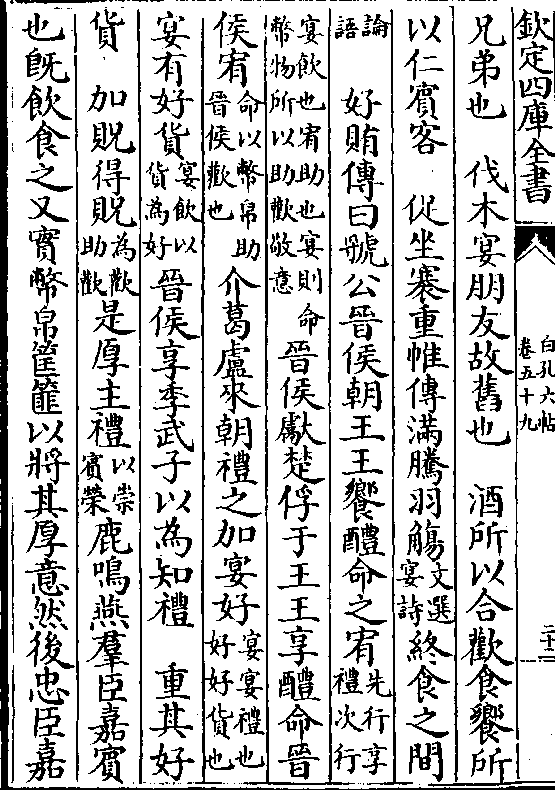 欽定四庫全書
白孔六帖
卷五十九
二十二
兄弟也　伐木宴朋友故舊也　酒所以合歡食饗所
以仁賓客　促坐褰重帷傳滿騰羽觴文選宴詩終食之間
論語　好賄傳曰虢公晉侯朝王王饗醴命之宥先行享禮次行
宴飲也宥助也宴則命幣物所以助歡敬意晉侯獻楚俘于王王享醴命晉
侯宥命以幣帛助晉侯歡也介葛盧來朝禮之加宴好宴宴禮也好好貨也
宴有好貨宴飲以貨為好晉侯享季武子以為知禮　重其好
貨　加貺得貺為歡助歡是厚主禮以崇賓榮鹿鳴燕羣臣嘉賓
也旣飲食之又實幣帛筐篚以將其厚意然後忠臣嘉